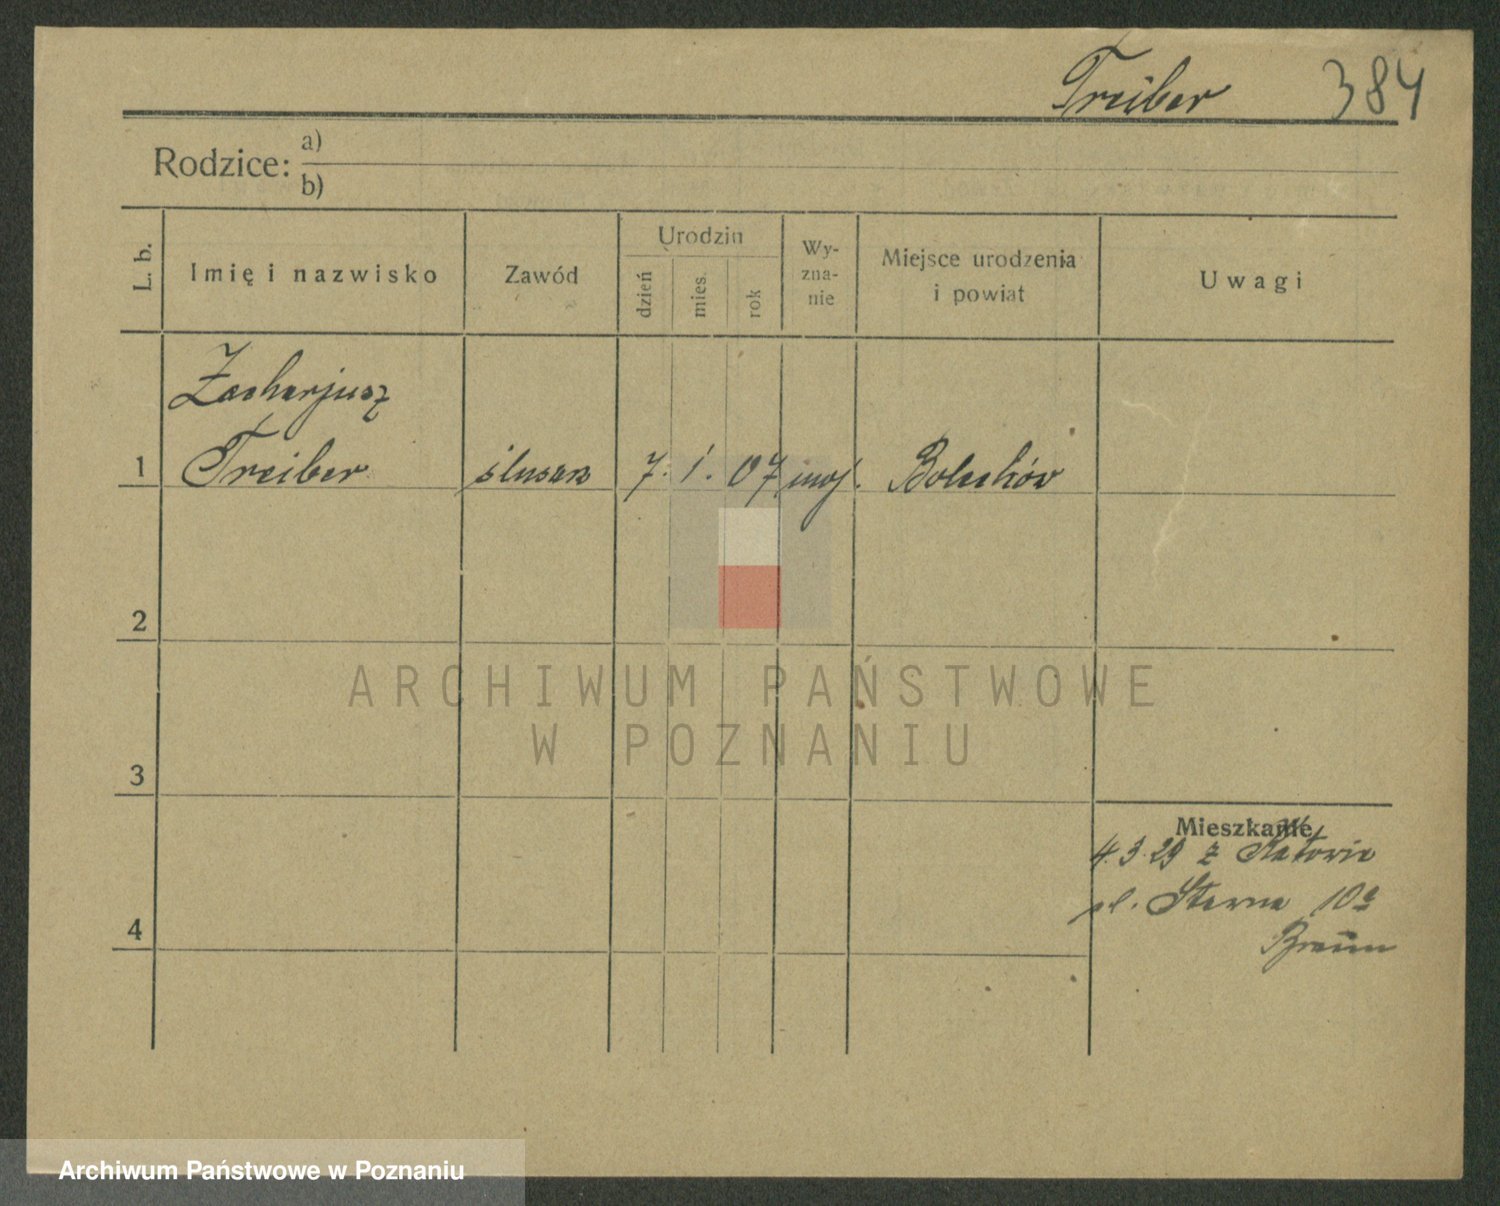 Treiber 384
Rodzice: a)
b)
L. b.
Imię i nazwisko
Zawód
Urodzin
dzień
mies.
rok
Wy-
zna-
nie
Miejsce urodzenia
i powiat
Uwagi
Zacharjusz
1 Treiber ślusarz 7. 1. 07 moj. Bolechów
2
ARCHIWUM PAŃSTWOWE
W POZNANIU
3
Mieszkanie
4.3.29 z Katowic
pl. 10a
4
Braun
Archiwum Państwowe w Poznaniu